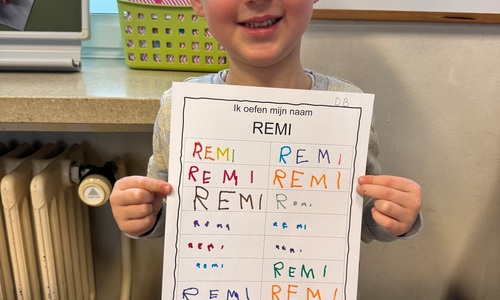 DB
Ik oefen mijn naam
REMI
REMI REMI
REMI REMI
REMI REMI
REMI REMI
REMI REMI
REMI REMI
REMI REMI